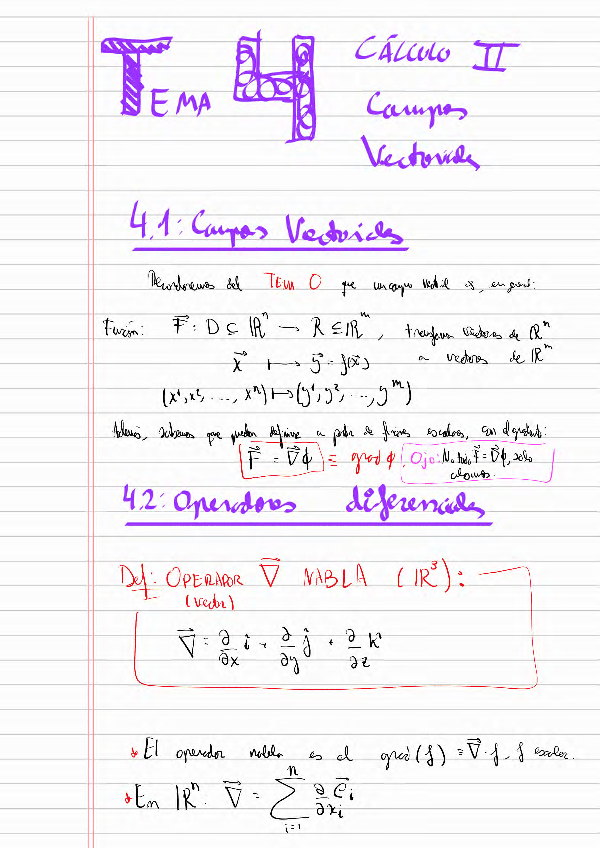 TEMA 4 CÁLCULO II
Campos
Vectoriales
4.1: Campos Vectoriales
Recordemos del TEMA 0 que un campo vectorial es, en general:
Función: F⃗: D ⊆ ℝⁿ → R ⊆ ℝᵐ, transforma vectores de ℝⁿ
x⃗ ↦ y⃗ = f(x⃗) a vectores de ℝᵐ
(x¹, x², ..., xⁿ) ↦ (y¹, y², ..., yᵐ)
Además, sabemos que pueden definirse a partir de funciones escalares, con el gradiente:
F⃗ = ∇⃗ϕ ≡ grad ϕ Ojo: No todo F⃗ = ∇⃗ϕ, solo
algunos.
4.2: Operadores diferenciales
Def: OPERADOR ∇⃗ NABLA (ℝ³):
(vector)
∇⃗ = ∂/∂x î + ∂/∂y ĵ + ∂/∂z k̂
El operador nabla es el grad(f) = ∇⃗·f, f escalar.
En ℝⁿ: ∇⃗ = ∑ᵢ₌₁ⁿ ∂/∂xᵢ e⃗ᵢ